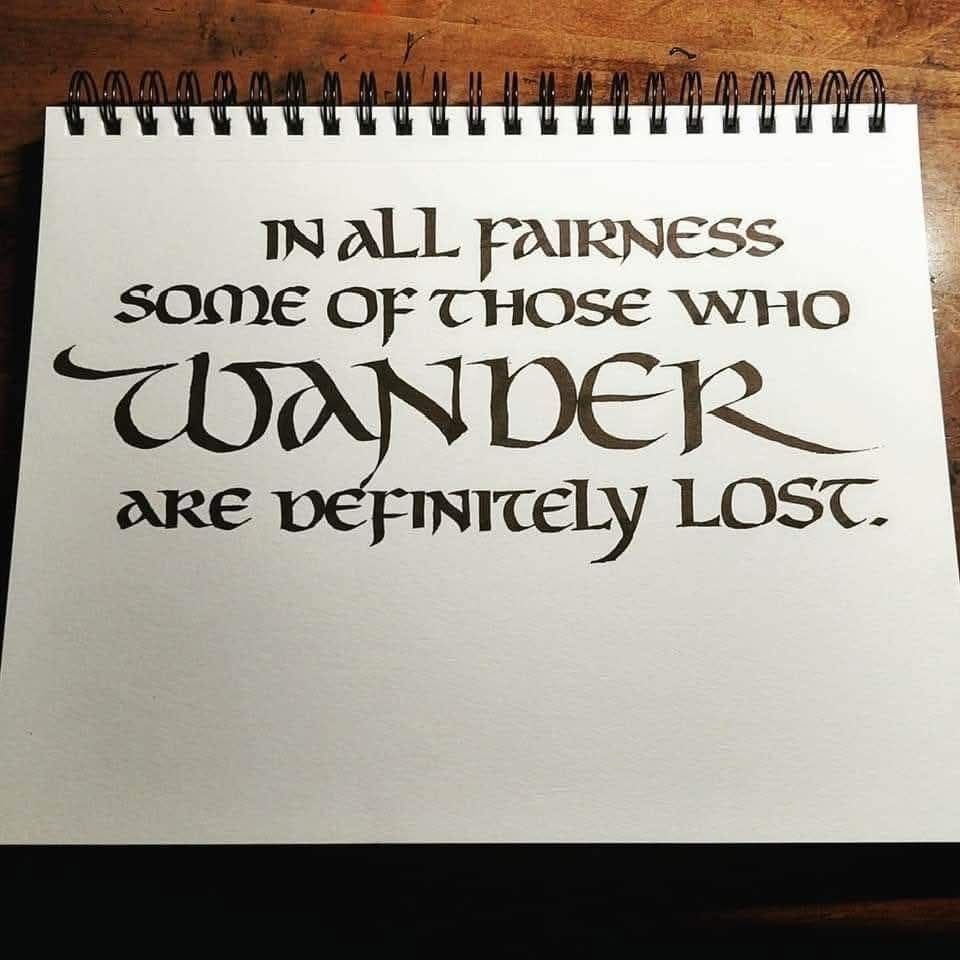 IN ALL FAIRNESS
SOME OF THOSE WHO
WANDER
ARE DEFINITELY LOST.